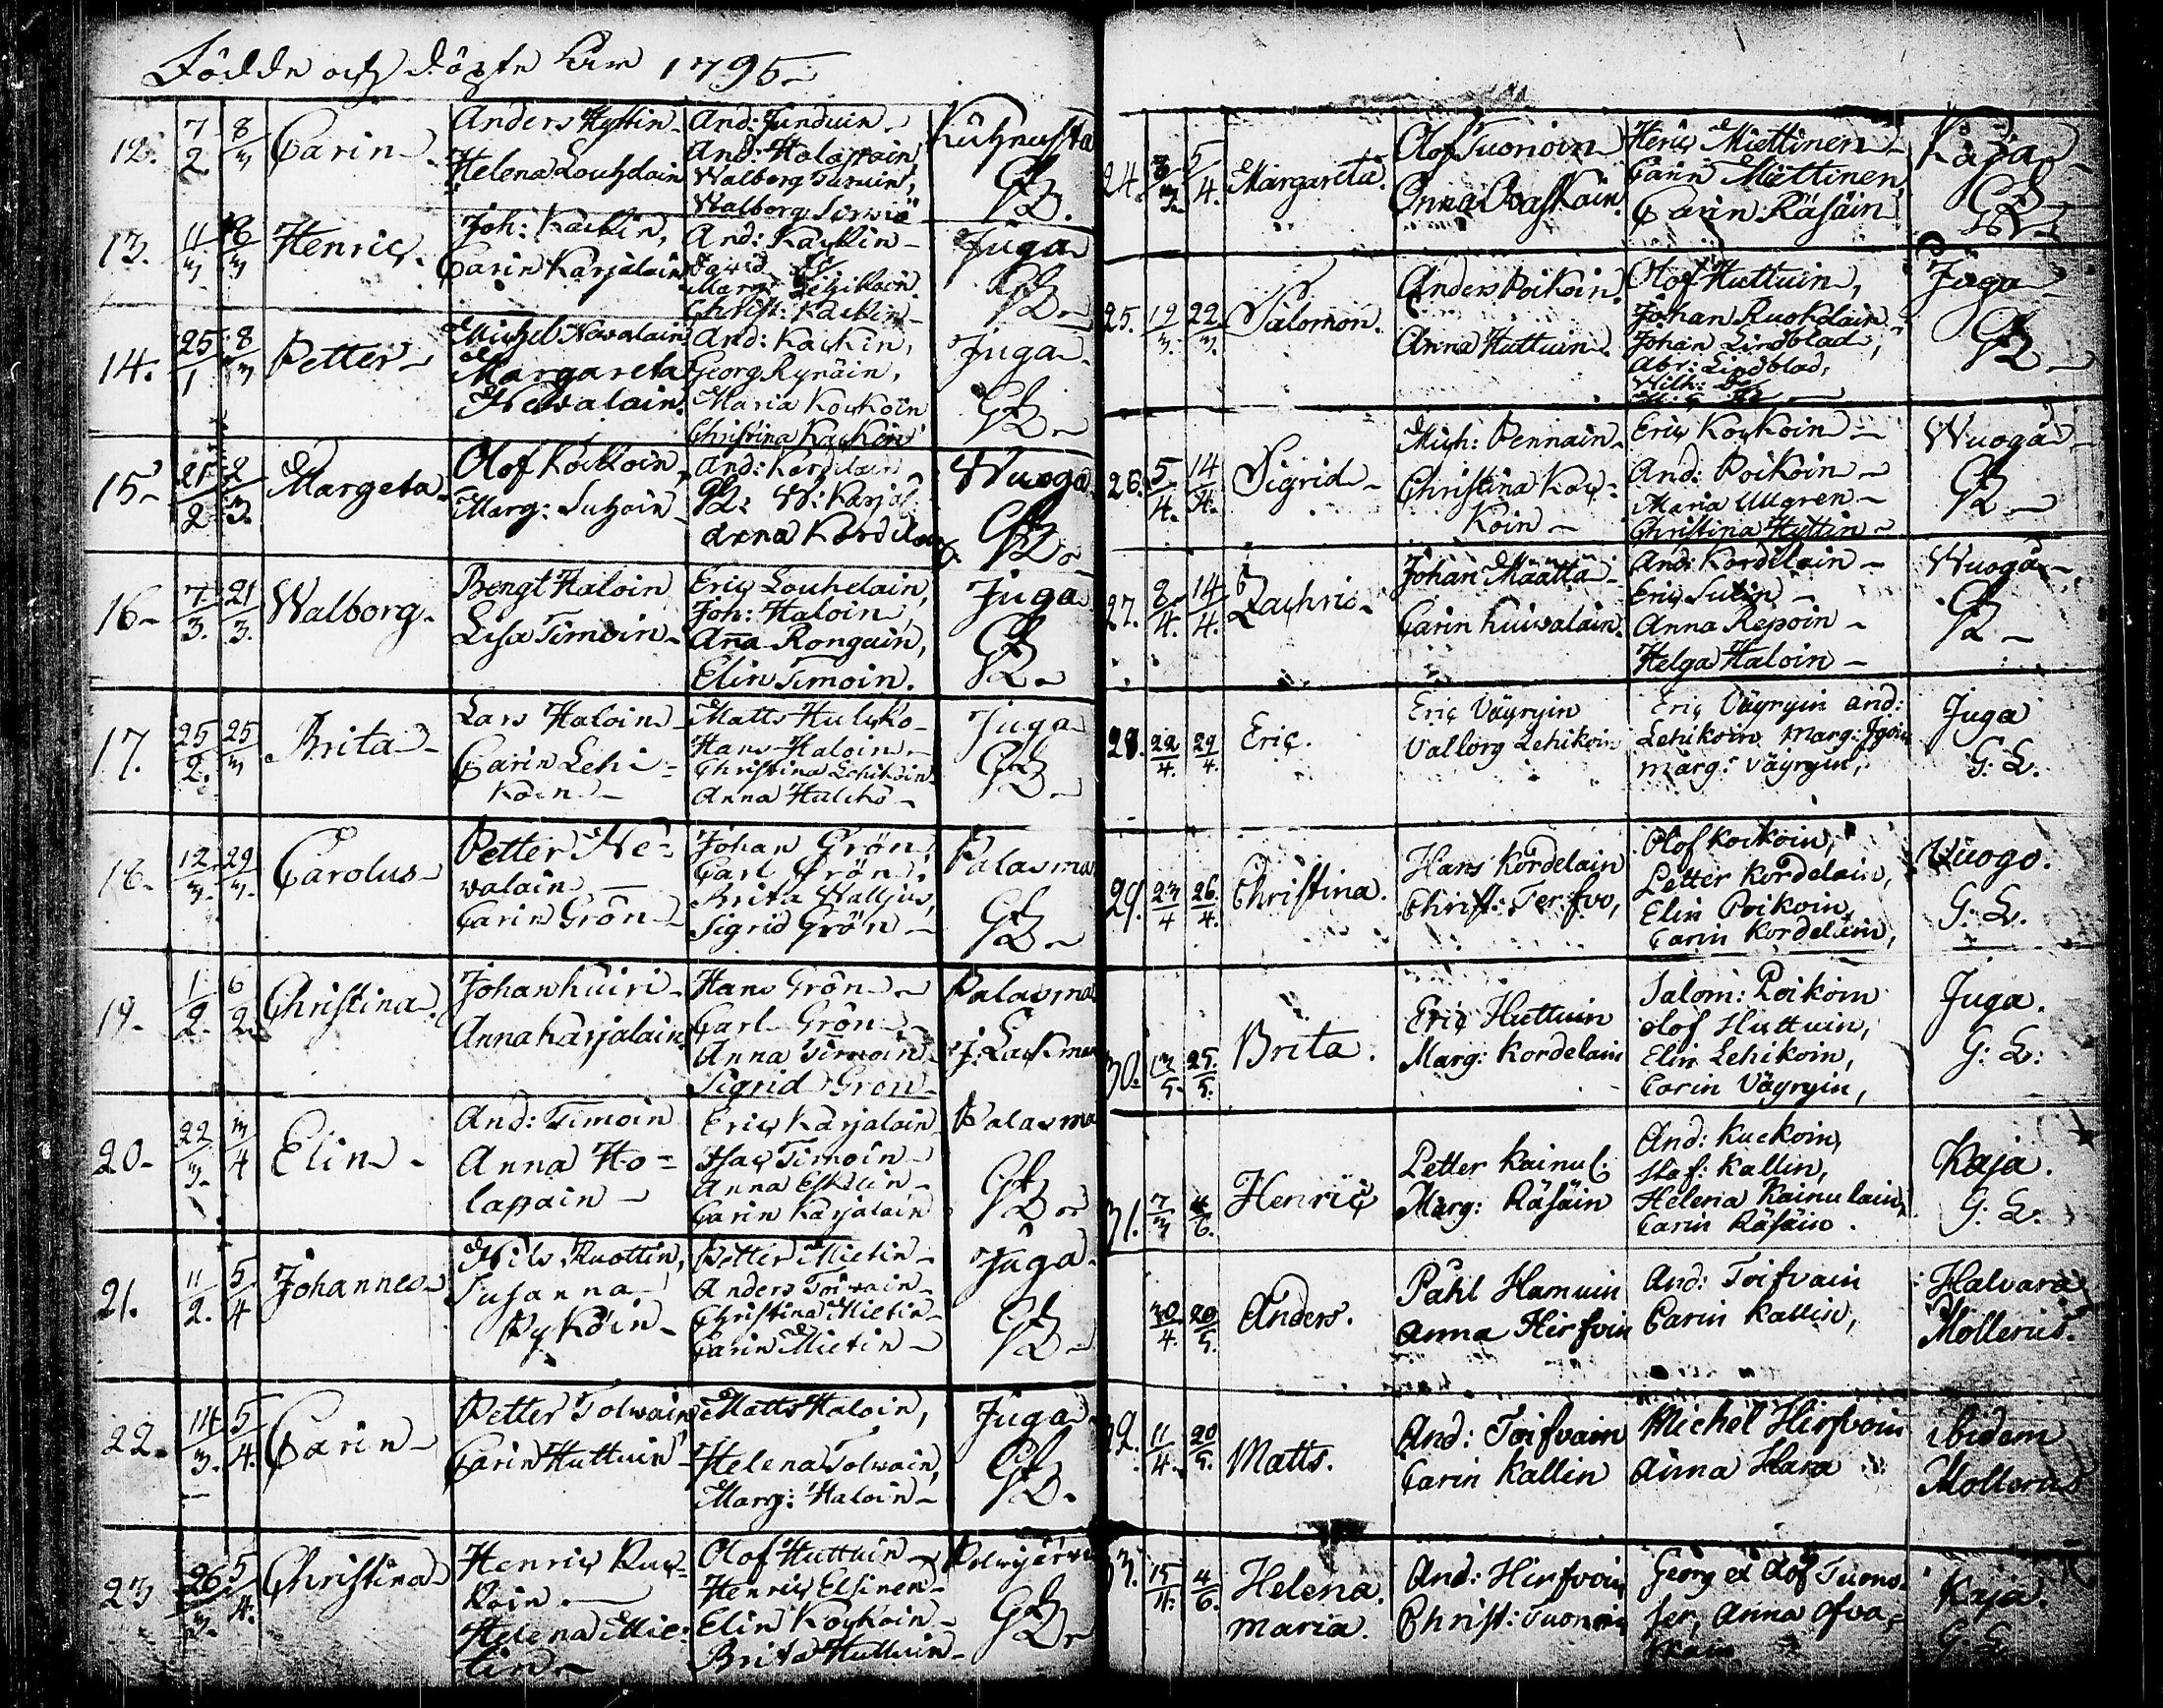 Födde och döpte år 1795
12. 7/2 8/3 Carin
Anders Hyttin
Helena Louhelain
And: Junduin
And: Holapain
Walborg Turuin,
Walborg
GL.
13. 11/3 18/3 Henric
Joh: Kackin,
Carin Karjalain
And: Kackin
David Do
Marg: Lehikoin
Christ: Kackin
Juga
GL
14. 25/1 8/3 Petter
Michel Nevalain
Margareta
Nevalain.
And: Kackin,
Georg Rynäin,
Maria Kockoin
Christina Kackin
Juga
GL
15 21/2 2/3. Margeta
Olof Kockoin,
Marg: Suhoin
And: Kordelain
W: Karjal
Anna Kordelain
Wuogo
GL
16 7/3. 21/3. Walborg
Bengt Haloin
Lisa Timoin
Eric Louhelain,
Joh: Haloin,
Anna Ronguin,
Elin Timoin.
Juga
GL
17. 25/2. 25/3 Brita
Lars Haloin
Carin Lehi=
koin
Matts Hulcko
Hans Haloin
Christina Lehikoin
Anna Hulcko
Juga
GL
18. 12/3. 29/3. Carolus
Petter Ne=
valain
Carin Grön
Johan Grön
Carl Grön;
Brita Walljus,
Sigrid Grön
Palasma
GL
19. 1/2. 6/2. Christina
Johan Kuiri
Anna Karjalain
Hans Grön
Carl Grön
Anna Timoin
Sigrid Grön
Palasma
J: Lackman
20 22/3. 3/4 Elin
And: Timoin
Anna Ho=
lapain
Eric Karjalain
Isac Timoin
Anna Eskelin
Carin Karjalain
Palasma
GL
21. 11/2. 5/4 Johannes
Nils Ruottin,
Susanna
Pyköin
Petter Mietin
Anders Toivain
Christina Mietin
Carin Mietin
Juga
GL
22. 14/3. 5/4. Carin
Petter Tolwain,
Carin Huttuin
Matts Haloin,
Helena Tolwain,
Marg: Haloin
Juga
GL.
23 26/3. 5/4. Christina
Henric Kuc=
koin
Helena Mie=
tin
Olof Huttuin
Henric Elsinen
Elin Kockoin
Brita Huttuin
Polvijärvi
GL
24. 8/3. 5/4. Margareta.
Olof Tuonoin
Anna Ovaskain
Henric Miettinen
Carin Miettinen
Carin Räsäin
Kaja
GL
25. 19/3. 22/3. Salomon.
Anders Poikoin.
Anna Huttuin.
Olof Huttuin,
Johan Ruokolain
Johan Lindblad,
Abr: Lindblad,
Wilh: Do
Juga
GL
26. 5/4. 14/4. Sigrid
Mich: Pennain
Christina Koc=
koin
Eric Kockoin
And: Poikoin
Maria Ullgren
Christina Hyttin
Wuogo
GL
27. 8/4. 14/4. Zachris
Johan Määttä
Carin Kuivalain.
And: Kordelain
Eric Sutin
Anna Repoin
Helga Haloin
Wuogo
GL
28. 22/4. 29/4. Eric.
Eric Väyryin
Valborg Lehikoin
Eric Väyryin And:
Lehikoin Marg: Igoin
Marg: Väyryin,
Juga
G: L.
29. 23/4 26/4. Christina.
Hans Kordelain
Christ: Terfvo,
Olof Kockoin,
Petter Kordelain,
Elin Poikoin,
Carin Kordelain,
Vuogo.
G: L.
30. 13/5. 25/5. Brita.
Eric Huttuin
Marg: Kordelain
Salom: Poikoin
Olof Huttuin,
Elin Lehikoin,
Carin Väyryin,
Juga.
G: L:
31. 7/3 4/6. Henric
Petter Kainul:
Marg: Räsäin
And: Kuckoin,
Staf: Kallin,
Helena Kainulain,
Carin Räsäin.
Kaja.
G: L.
30/4. 20/5. Anders.
Påhl Hamuin
Anna Hirfvoin
And: Toifvain
Carin Kallin,
Halvara
Mollerus.
32. 11/4. 20/5. Matts.
And: Toifvain
Carin Kallin
Michel Hirfvoin
Anna Hara
ibidem
Mollerus
33. 15/4. 4/6. Helena.
Maria.
And: Hirfvoin
Christ: Tuonoin
Georg et Olof Tuono-
ser, Anna Ofvas-
kain
Kaja.
G: L.